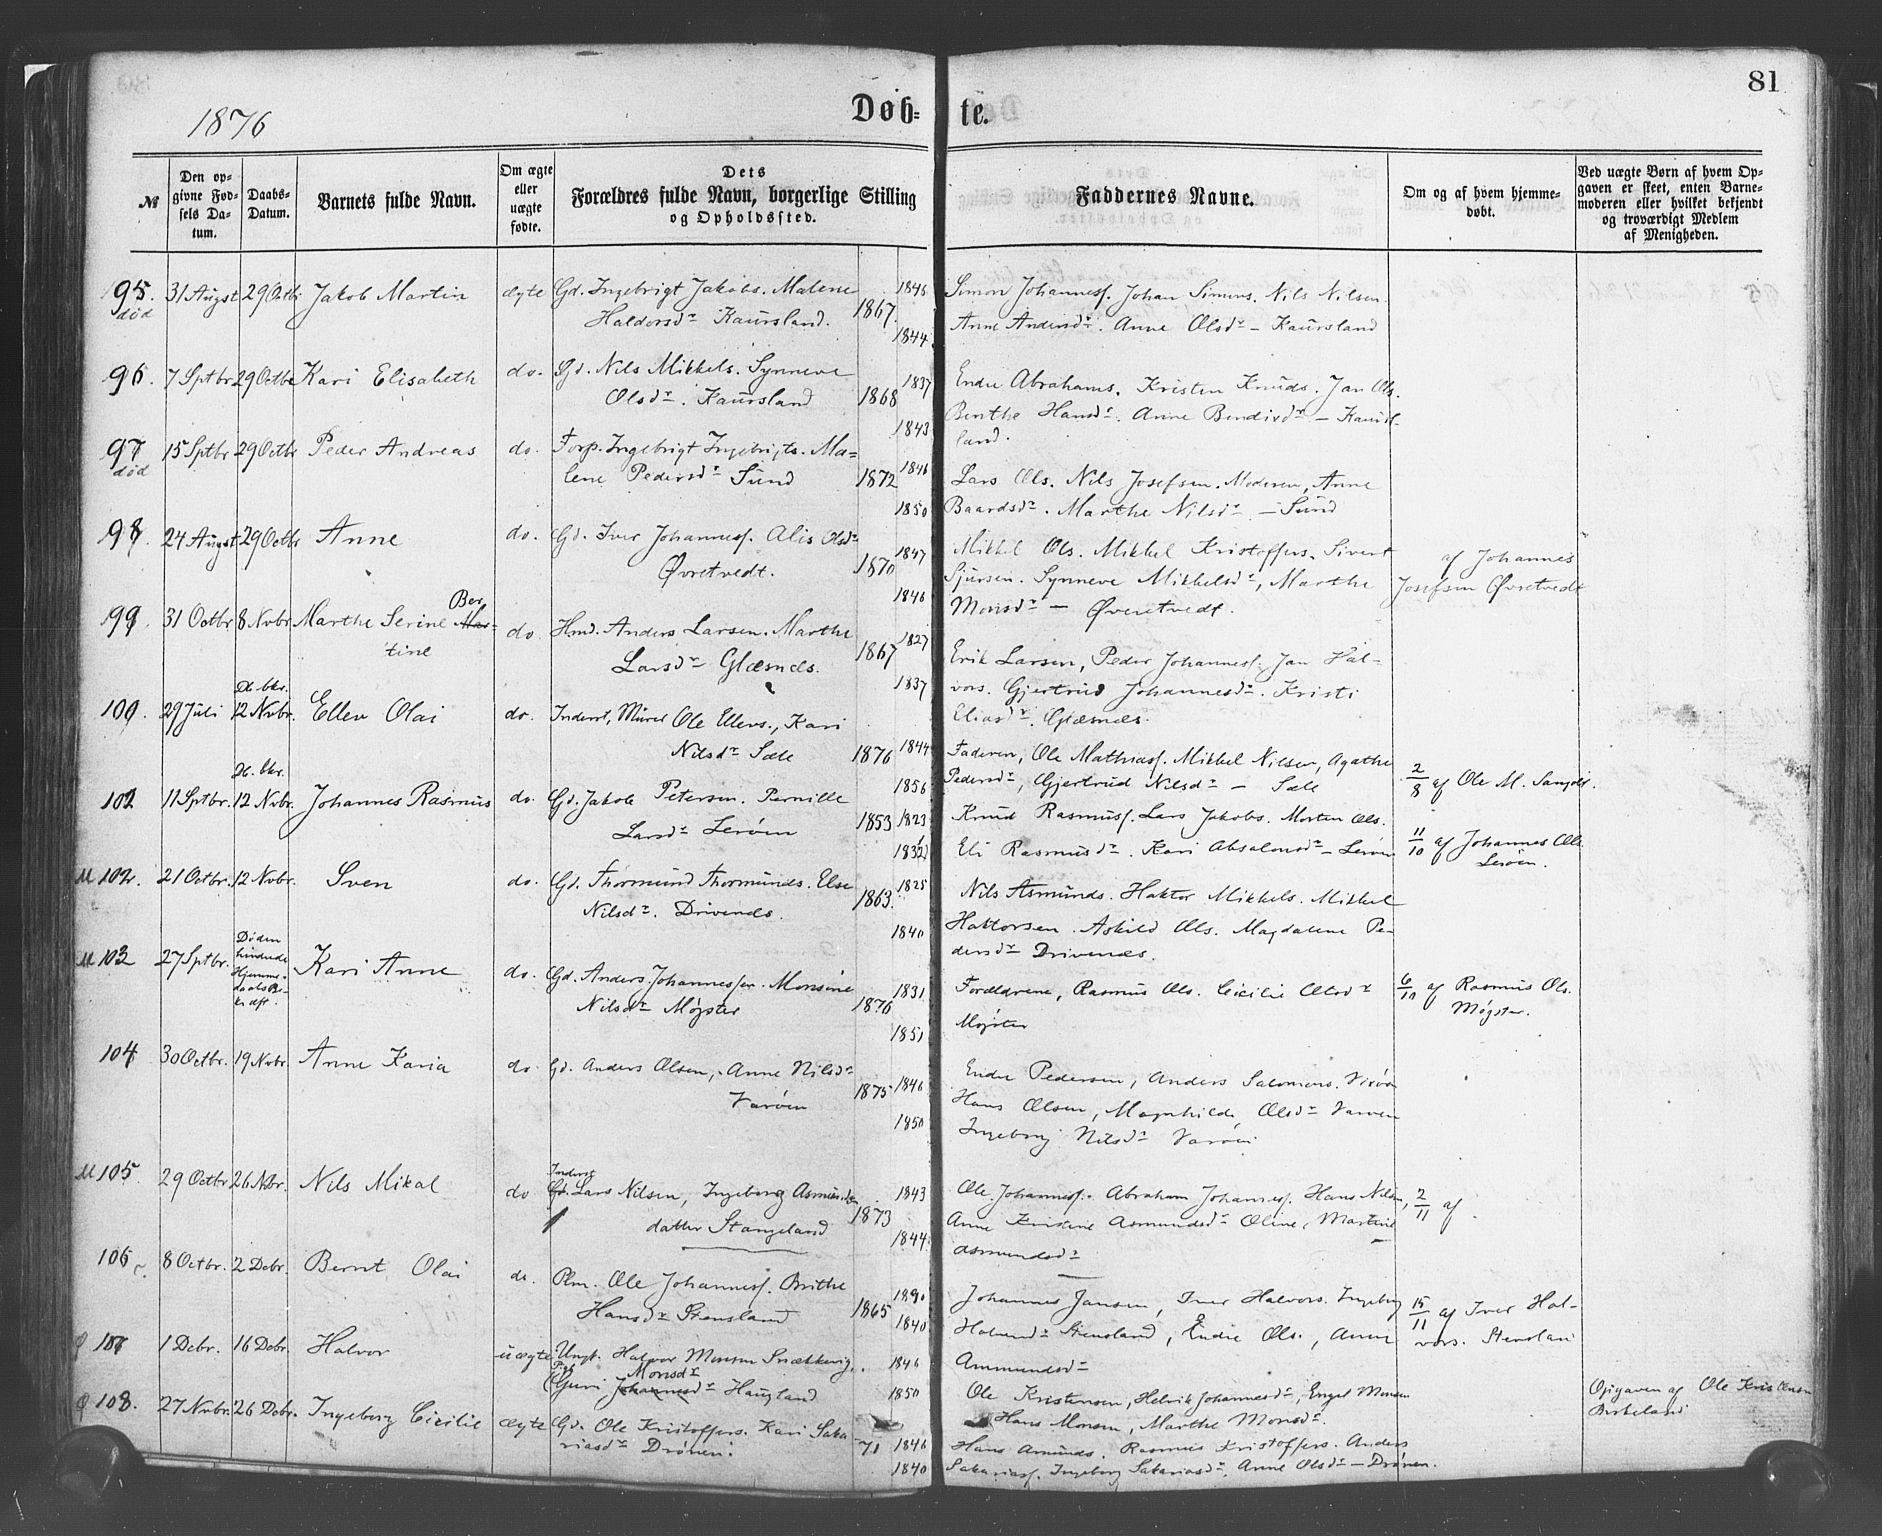 81
1876
Døb-te.
№
Den opgivne Fødsels Datum.
Daabs-Datum.
Barnets fulde Navn.
Om ægte eller uægte fødte.
Dets Forældres fulde Navn, borgerlige Stilling og Opholdssted.
Faddernes Navne.
Om og af hvem hjemmedøbt.
Ved uægte Børn af hvem Opgaven er skeet, enten Barnemoderen eller hvilket bekjendt og troværdigt Medlem af Menigheden.
95. 31 Augst 29 Octb Jakob Martin ægte Gd. Ingebrigt Jakobs. Malene 1846 Simon Johannesf. Johan Simons. Nils Nilsen.
død Haldorsdr Kaursland. 1867. 1844 Anne Andersdr. Anne Olsdr – Kaursland
96. 7 Sptbr 29 Octbr Kari Elisabeth do. Gd. Nils Mikkels. Synneve 1837 Endre Abrahams. Kristen Knuds. Jan Ols.
Olsdr. Kaursland 1868 1843 Benthe Hansdr. Anne Bendixdr – Kaurs-
land.
97 15 Sptbr 29 Octbr Peder Andreas do. Forp. Ingebrigt Ingebrigts. Ma= 1846 Lars Ols. Nils Josefsen. Moderen, Anne
død lene Pedersdr Sund 1872 1850 Baardsdr. Marthe Nilsdr – Sund
98. 24 Augst 29 Octbr Anne do. Gd. Iver Johannesf. Alis Olsdr 1847 Mikkel Ols. Mikkel Kristoffers. Sivert af Johannes
Øvretvedt. 1870 1846 Sjursen. Synneve Mikkelsdr, Marthe Josefsen Øvretvedt
Monsdr – Øveretvedt.
99. 31 Octbr 8 Nvbr Marthe Serine Ber do Hmd. Anders Larsen. Marthe 1827 Erik Larsen, Peder Johannesf. Jan Hal-
tine Larsdr Glæsnæs. 1867 1837 vors. Gjertrud Johannesdr. Kristi
Eliasdr. Glæsnæs.
Db. bkr.
100. 29 Juli 12 Nvbr. Ellen Olai do. Inderst, Murer Ole Ellens., Kari 1844 Faderen, Ole Mathiasf. Mikkel Nilsen, Agathe 2/8 af Ole M.
Nilsdr Sæle 1876 1856 Pedersdr, Gjertrud Nilsdr – Sæle
Db. bkr.
101 11 Sptbr. 12 Nvbr. Johannes Rasmus do. Gd. Jakob Petersen. Pernille 1823 Knud Rasmusf. Lars Jakobs. Morten Ols. 11/10 af Johannes Ols.
Larsdr Lerøen 1853 1832 Eli Rasmusdr. Kari Absalonsdr – Lerøen Lerøen.
M 102. 21 Octbr. 12 Nvbr. Sven do. Gd. Thormund Thormunds. Else 1825 Nils Asmunds. Haktor Mikkels. Mikkel
Nilsdr. Drivenæs. 1863. 1840 Haktorsen. Askild Ols. Magdalene Pe-
dersdr Drivenæs.
M 103 27 Sptbr. Døden hindrede Hjemmedaabs Bekræft. Kari Anne do. Gd. Anders Johannessen. Monsine 1831 Forældrene, Rasmus Ols. Cicilie Olsdr 6/10 af Rasmus Ols.
Nilsdr Møgster 1876 1851 Møgster Møgster.
104 30 Octbr. 19 Nvbr. Anne Karia do. Gd. Anders Olsen, Anne Nilsdr 1846 Endre Pedersen, Anders Salomons.
Varøen 1875 1850 Hans Olsen, Magnhilde Olsdr Varøen
Ingeborg Nilsdr Varøen
M 105 29 Octbr 26 Nvbr. Nils Mikal do Inderst Lars Nilsen, Ingeborg Asmunds 1843 Ole Johannesf. Abraham Johannesf. Hans Nilsen, 2/11 af
datter Stangeland 1873 1844 Anne Kirstine Asmundsdr Oline, Martine
Asmundsdr
106 8 Octbr. 2 Debr. Bernt Olai do. Plm. Ole Johannesf. Brithe 1840 Johannes Jansen, Iver Halvors. Ingeborg 15/11 af Iver Hal-
Hansdr Stensland 1865 1840 Stensland, Endre Ols., Anne vors. Stensland
Ammundsdr
107 1 Debr. 16 Debr. Halvor uægte Ungk. Halvor Monsen Snækkevig, 1846 Ole Kristensen, Helvik Johannesdr, Engel Monsen Opgaven af Ole Kristensen
Pige Guri Monsdr Haugland 1850 Hans Monsen, Marthe Monsdr. Birkeland
108. 27 Nvbr. 26 Debr. Ingeborg Cicilie ægte Gd. Ole Kristoffers. Kari Saka 1846 Hans Amunds. Rasmus Kristoffers. Anders
riasdr Drønen. 71 1840 Sakariasf. Ingeborg Sakariasdr, Anne Olsdr – Drønen.